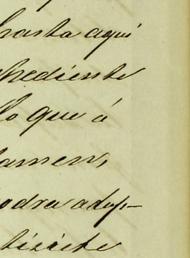 hasta aquí
pediente
lo que á
tamen,
odra adop-